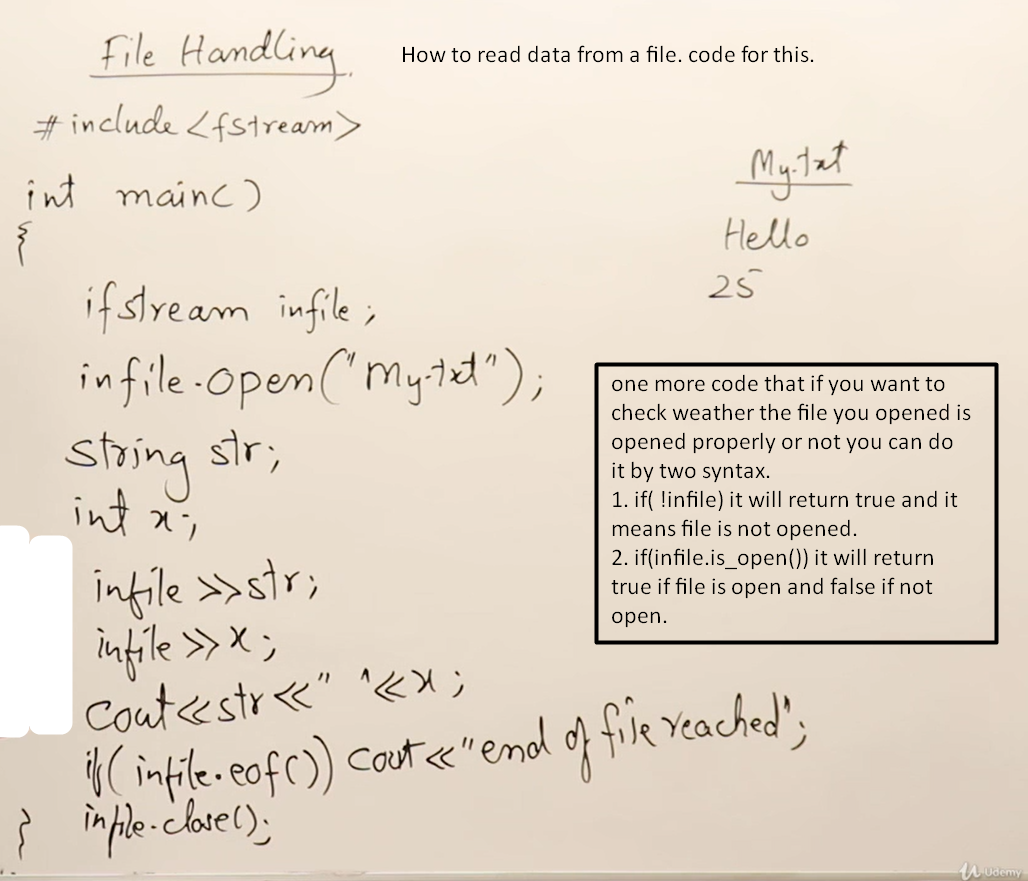 File Handling.
How to read data from a file. code for this.
#include<fstream>
int main()
{
ifstream infile;
infile.open("My.txt");
string str;
int x;
infile>>str;
infile>>x;
cout<<str<<" "<<x;
if(infile.eof()) cout<<"end of file reached";
infile.close();
}
My.txt
Hello
25
one more code that if you want to
check weather the file you opened is
opened properly or not you can do
it by two syntax.
1. if( !infile) it will return true and it
means file is not opened.
2. if(infile.is_open()) it will return
true if file is open and false if not
open.
Udemy